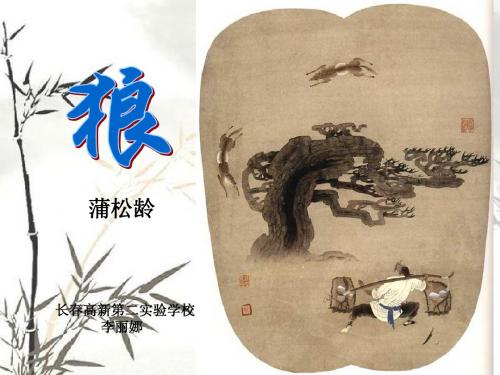 狼
蒲松龄
长春高新第二实验学校
李丽娜